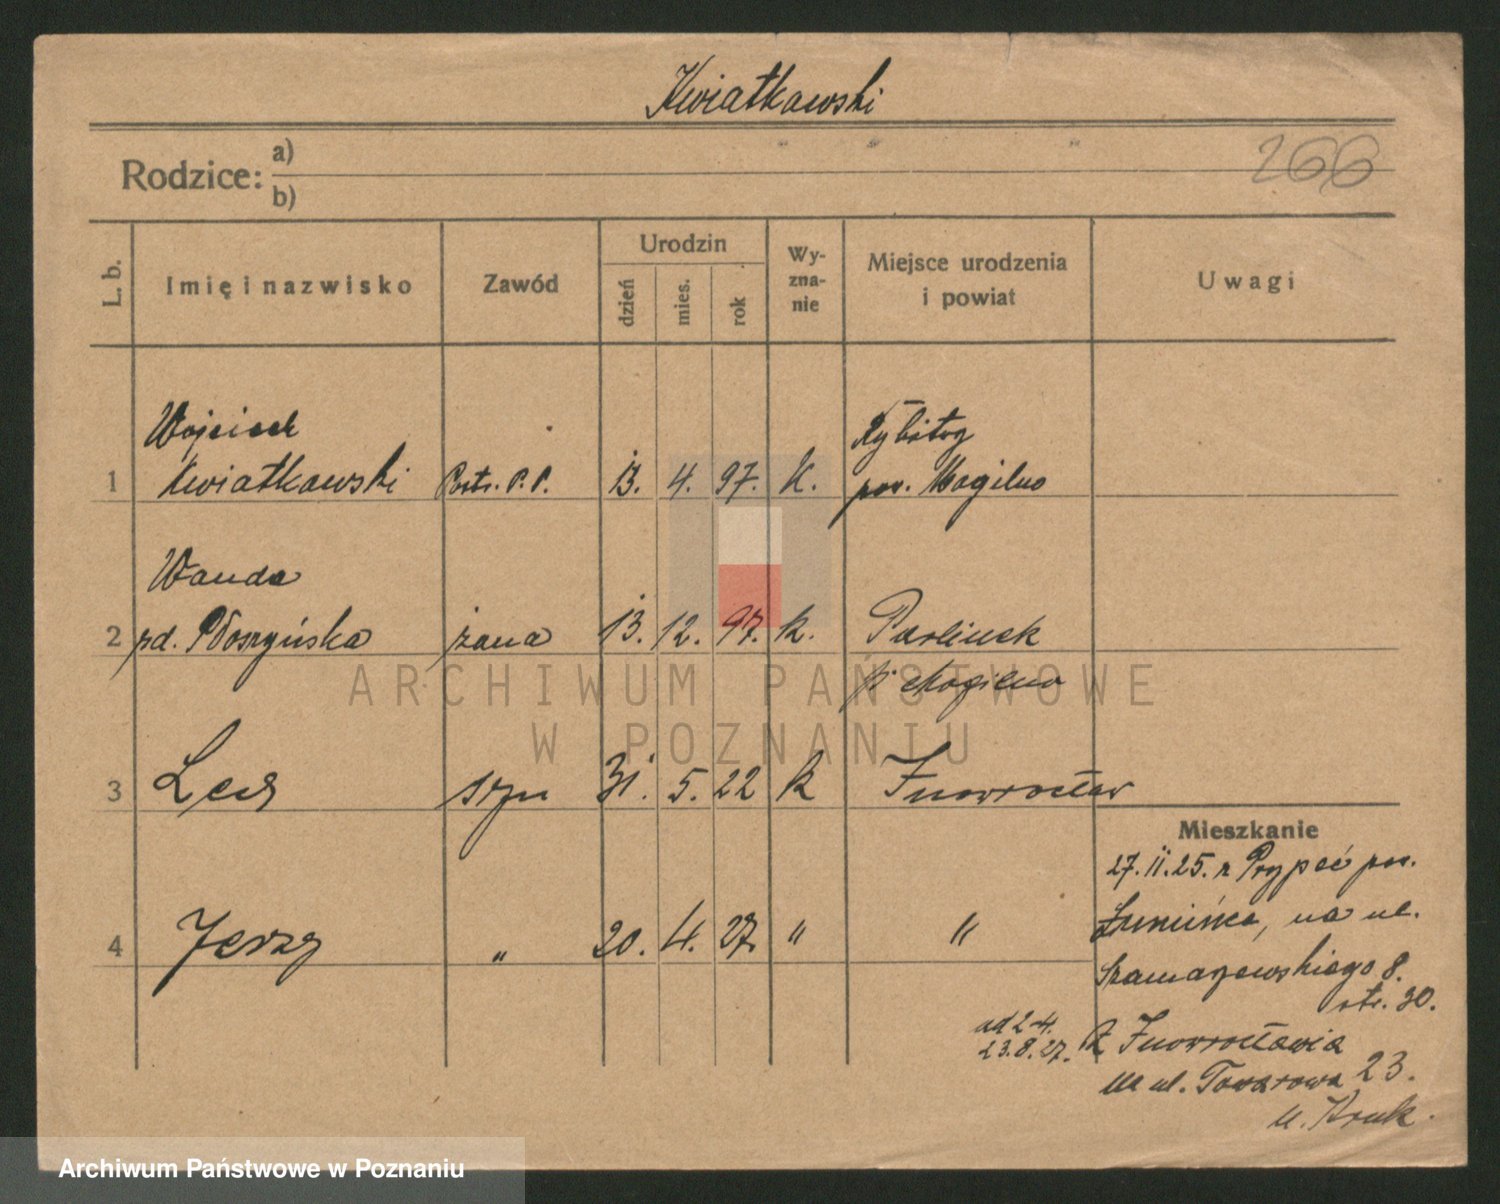 Kwiatkowski
266
Rodzice: a)
b)
L. b.
Imię i nazwisko
Zawód
Urodzin
dzień
mies.
rok
Wy-
zna-
nie
Miejsce urodzenia
i powiat
Uwagi
1
Wojciech
Kwiatkowski
Postr. P. P.
13. 4. 97.
K.
Rybitwy
pow. Mogilno
2
Wanda
zd. Płoszyńska
żona
13. 12. 97.
k.
Parlinek
p. Mogilno
3
Lech
syn
31. 5. 22
k
Inowrocław
4
Jerzy
"
20. 4. 27.
"
"
Mieszkanie
27. II. 25. z Prypeć pow.
Łuninca, na ul.
Szamarzewskiego 8.
str. 30.
ad 2-4.
23. 8. 27.
Z Inowrocławia
na ul. Towarowa 23.
u. Kruk.
ARCHIWUM PAŃSTWOWE
W POZNANIU
Archiwum Państwowe w Poznaniu